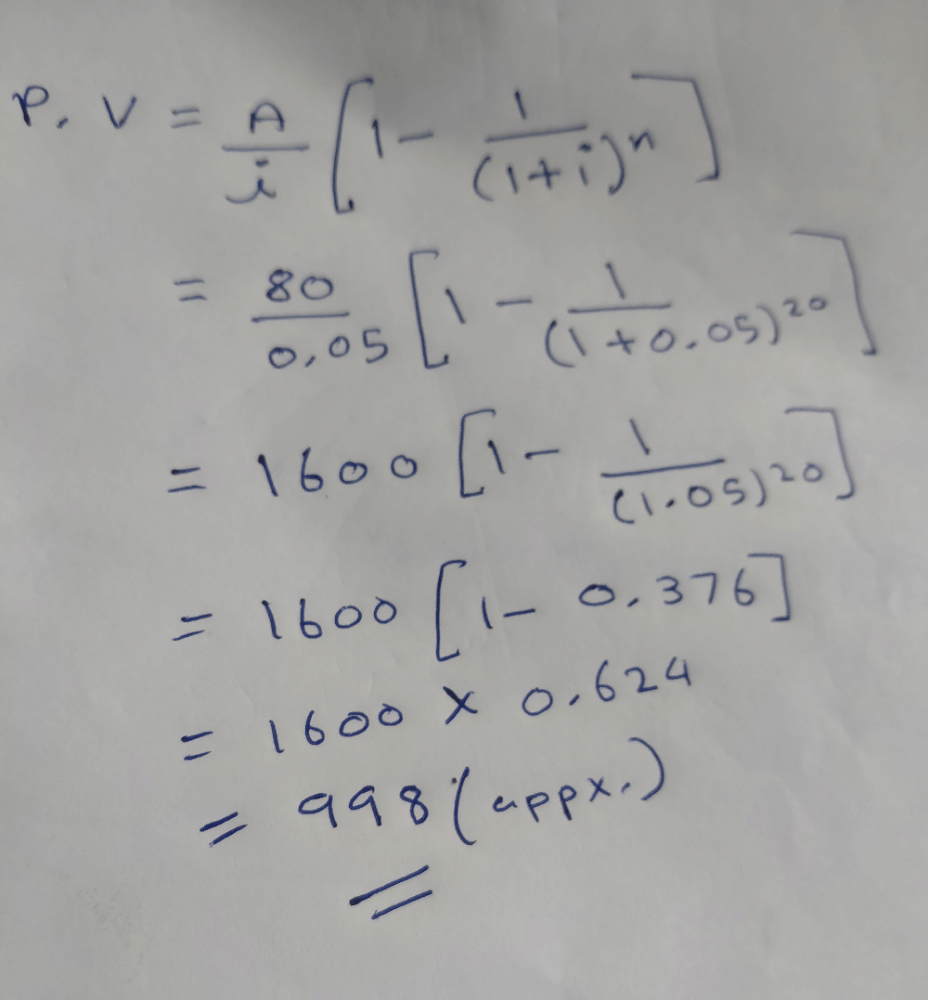 P. V = A/i [1 - 1/(1+i)^n]
= 80/0.05 [1 - 1/(1+0.05)^20]
= 1600 [1 - 1/(1.05)^20]
= 1600 [1 - 0.376]
= 1600 × 0.624
= 998 (appx.)